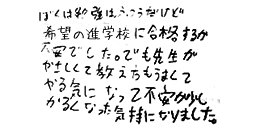 ぼくは勉強はふつうだけど
希望の進学校に合格するか
不安でした。でも先生が
やさしくて教え方もうまくて
やる気になって不安が少し
かるくなった気持になりました。